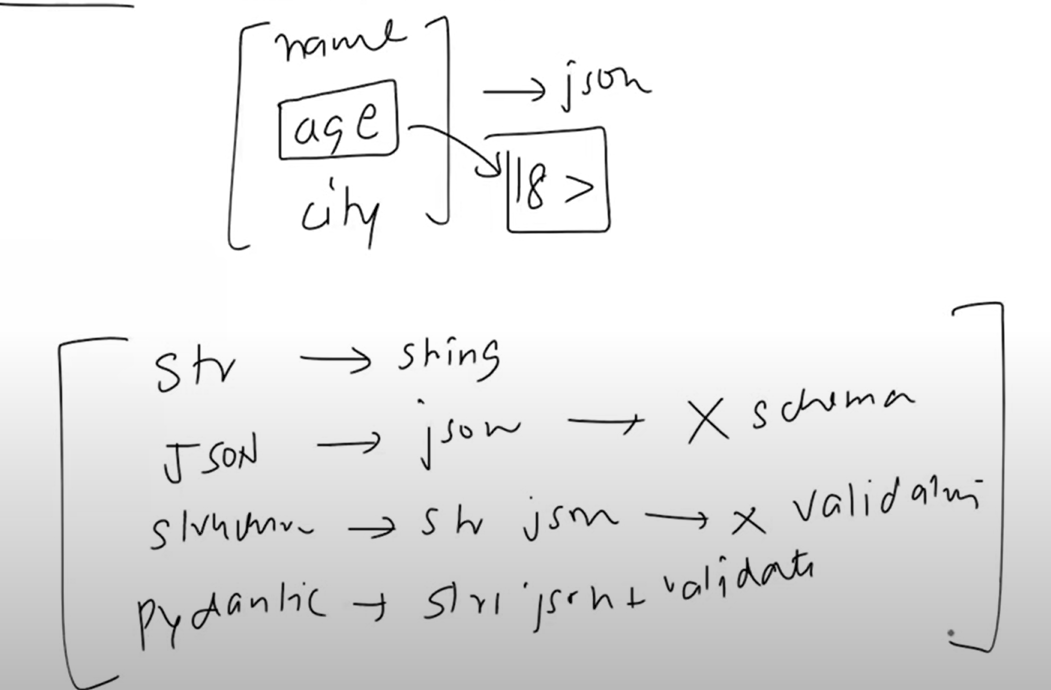 name
age
city
→ json
18 >
str → string
JSON → json → X schema
→ str json → x validation
Pydantic → json + validati